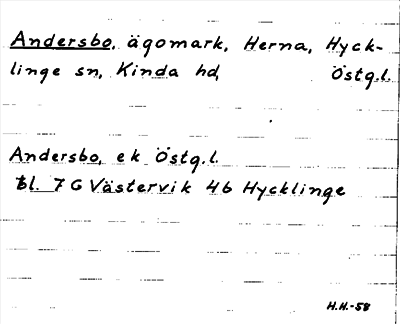 Andersbo, ägomark, Herna, Hyck-
linge sn, Kinda hd, Östg.l.
Andersbo, ek Östg.l.
bl. 7 G Västervik 4b Hycklinge
H.H.-58